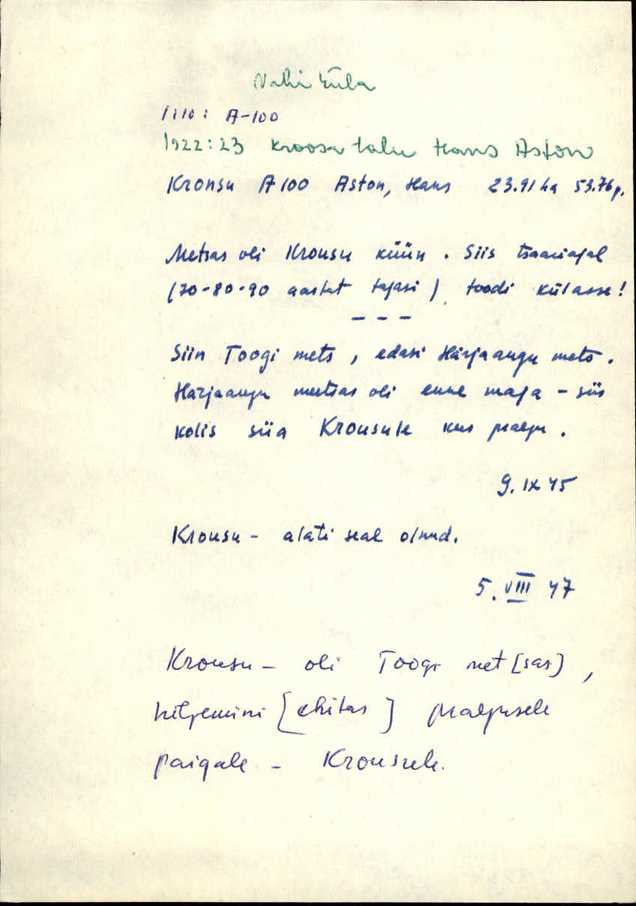 Vahi küla
1:10: A-100
1922:23 Kroosu talu Hans Aston
Kronsu A 100 Aston, Hans 23.91 ha 53.76 p.
Metsas oli Kronsu küün. Siis tsaariajal
(70-80-90 aastat tagasi) toodi külasse!
- - -
Siin Toogi mets, edasi Härjaaugu mets.
Härjaaugu metsas oli enne maja - siis
kolis siia Kronsule kus praegu.
9. IX 45
Kronsu - alati seal olnud.
5. VIII 47
Kronsu - oli Toogi met[sas],
hiljemini [ehitas] praegusele
paigale - Kronsule.